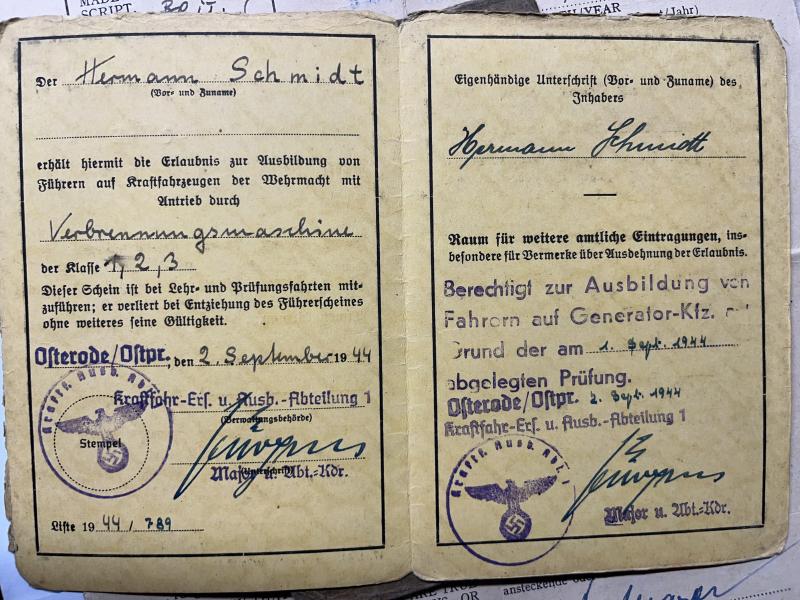 MADE
SCRIPT.
/YEAR
/Jahr)
Der Hermann Schmidt
(Vor- und Zuname)
erhält hiermit die Erlaubnis zur Ausbildung von
Führern auf Kraftfahrzeugen der Wehrmacht mit
Antrieb durch
Verbrennungsmaschine
der Klasse 1, 2, 3
Dieser Schein ist bei Lehr- und Prüfungsfahrten mit-
zuführen; er verliert bei Entziehung des Führerscheines
ohne weiteres seine Gültigkeit.
Osterode/Ostpr., den 2. September 1944
Kraftfahr-Ers. u. Ausb.-Abteilung 1
(Verwaltungsbehörde)
Stempel
(Unterschrift)
Major u. Abt.-Kdr.
Liste 1944 / 789
Eigenhändige Unterschrift (Vor- und Zuname) des
Inhabers
Hermann Schmidt
Raum für weitere amtliche Eintragungen, ins-
besondere für Vermerke über Ausdehnung der Erlaubnis.
Berechtigt zur Ausbildung von
Fahrern auf Generator-Kfz.
Grund der am 1. Sept. 1944
abgelegten Prüfung.
Osterode/Ostpr. 2. Sept. 1944
Kraftfahr-Ers. u. Ausb.-Abteilung 1
Major u. Abt.-Kdr.
OR
ansteckende